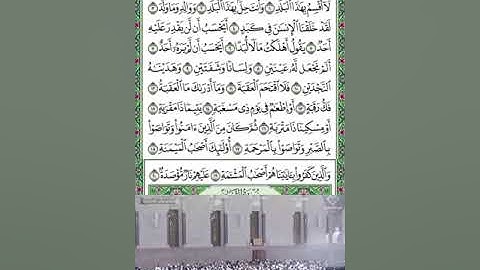 لَا أُقْسِمُ بِهَٰذَا الْبَلَدِ ۝١ وَأَنتَ حِلٌّ بِهَٰذَا الْبَلَدِ ۝٢ وَوَالِدٍ وَمَا وَلَدَ ۝٣
لَقَدْ خَلَقْنَا الْإِنسَٰنَ فِي كَبَدٍ ۝٤ أَيَحْسَبُ أَن لَّن يَقْدِرَ عَلَيْهِ
أَحَدٌ ۝٥ يَقُولُ أَهْلَكْتُ مَالًا لُّبَدًا ۝٦ أَيَحْسَبُ أَن لَّمْ يَرَهُ أَحَدٌ ۝٧
أَلَمْ نَجْعَل لَّهُ عَيْنَيْنِ ۝٨ وَلِسَانًا وَشَفَتَيْنِ ۝٩ وَهَدَيْنَٰهُ
النَّجْدَيْنِ ۝١٠ فَلَا اقْتَحَمَ الْعَقَبَةَ ۝١١ وَمَا أَدْرَىٰكَ مَا الْعَقَبَةُ ۝١٢
فَكُّ رَقَبَةٍ ۝١٣ أَوْ إِطْعَٰمٌ فِي يَوْمٍ ذِي مَسْغَبَةٍ ۝١٤ يَتِيمًا ذَا مَقْرَبَةٍ ۝١٥
أَوْ مِسْكِينًا ذَا مَتْرَبَةٍ ۝١٦ ثُمَّ كَانَ مِنَ الَّذِينَ ءَامَنُوا وَتَوَاصَوْا
بِالصَّبْرِ وَتَوَاصَوْا بِالْمَرْحَمَةِ ۝١٧ أُولَٰئِكَ أَصْحَٰبُ الْمَيْمَنَةِ ۝١٨
وَالَّذِينَ كَفَرُوا بِـَٔايَٰتِنَا هُمْ أَصْحَٰبُ الْمَشْـَٔمَةِ ۝١٩ عَلَيْهِمْ نَارٌ مُّؤْصَدَةٌ ۝٢٠